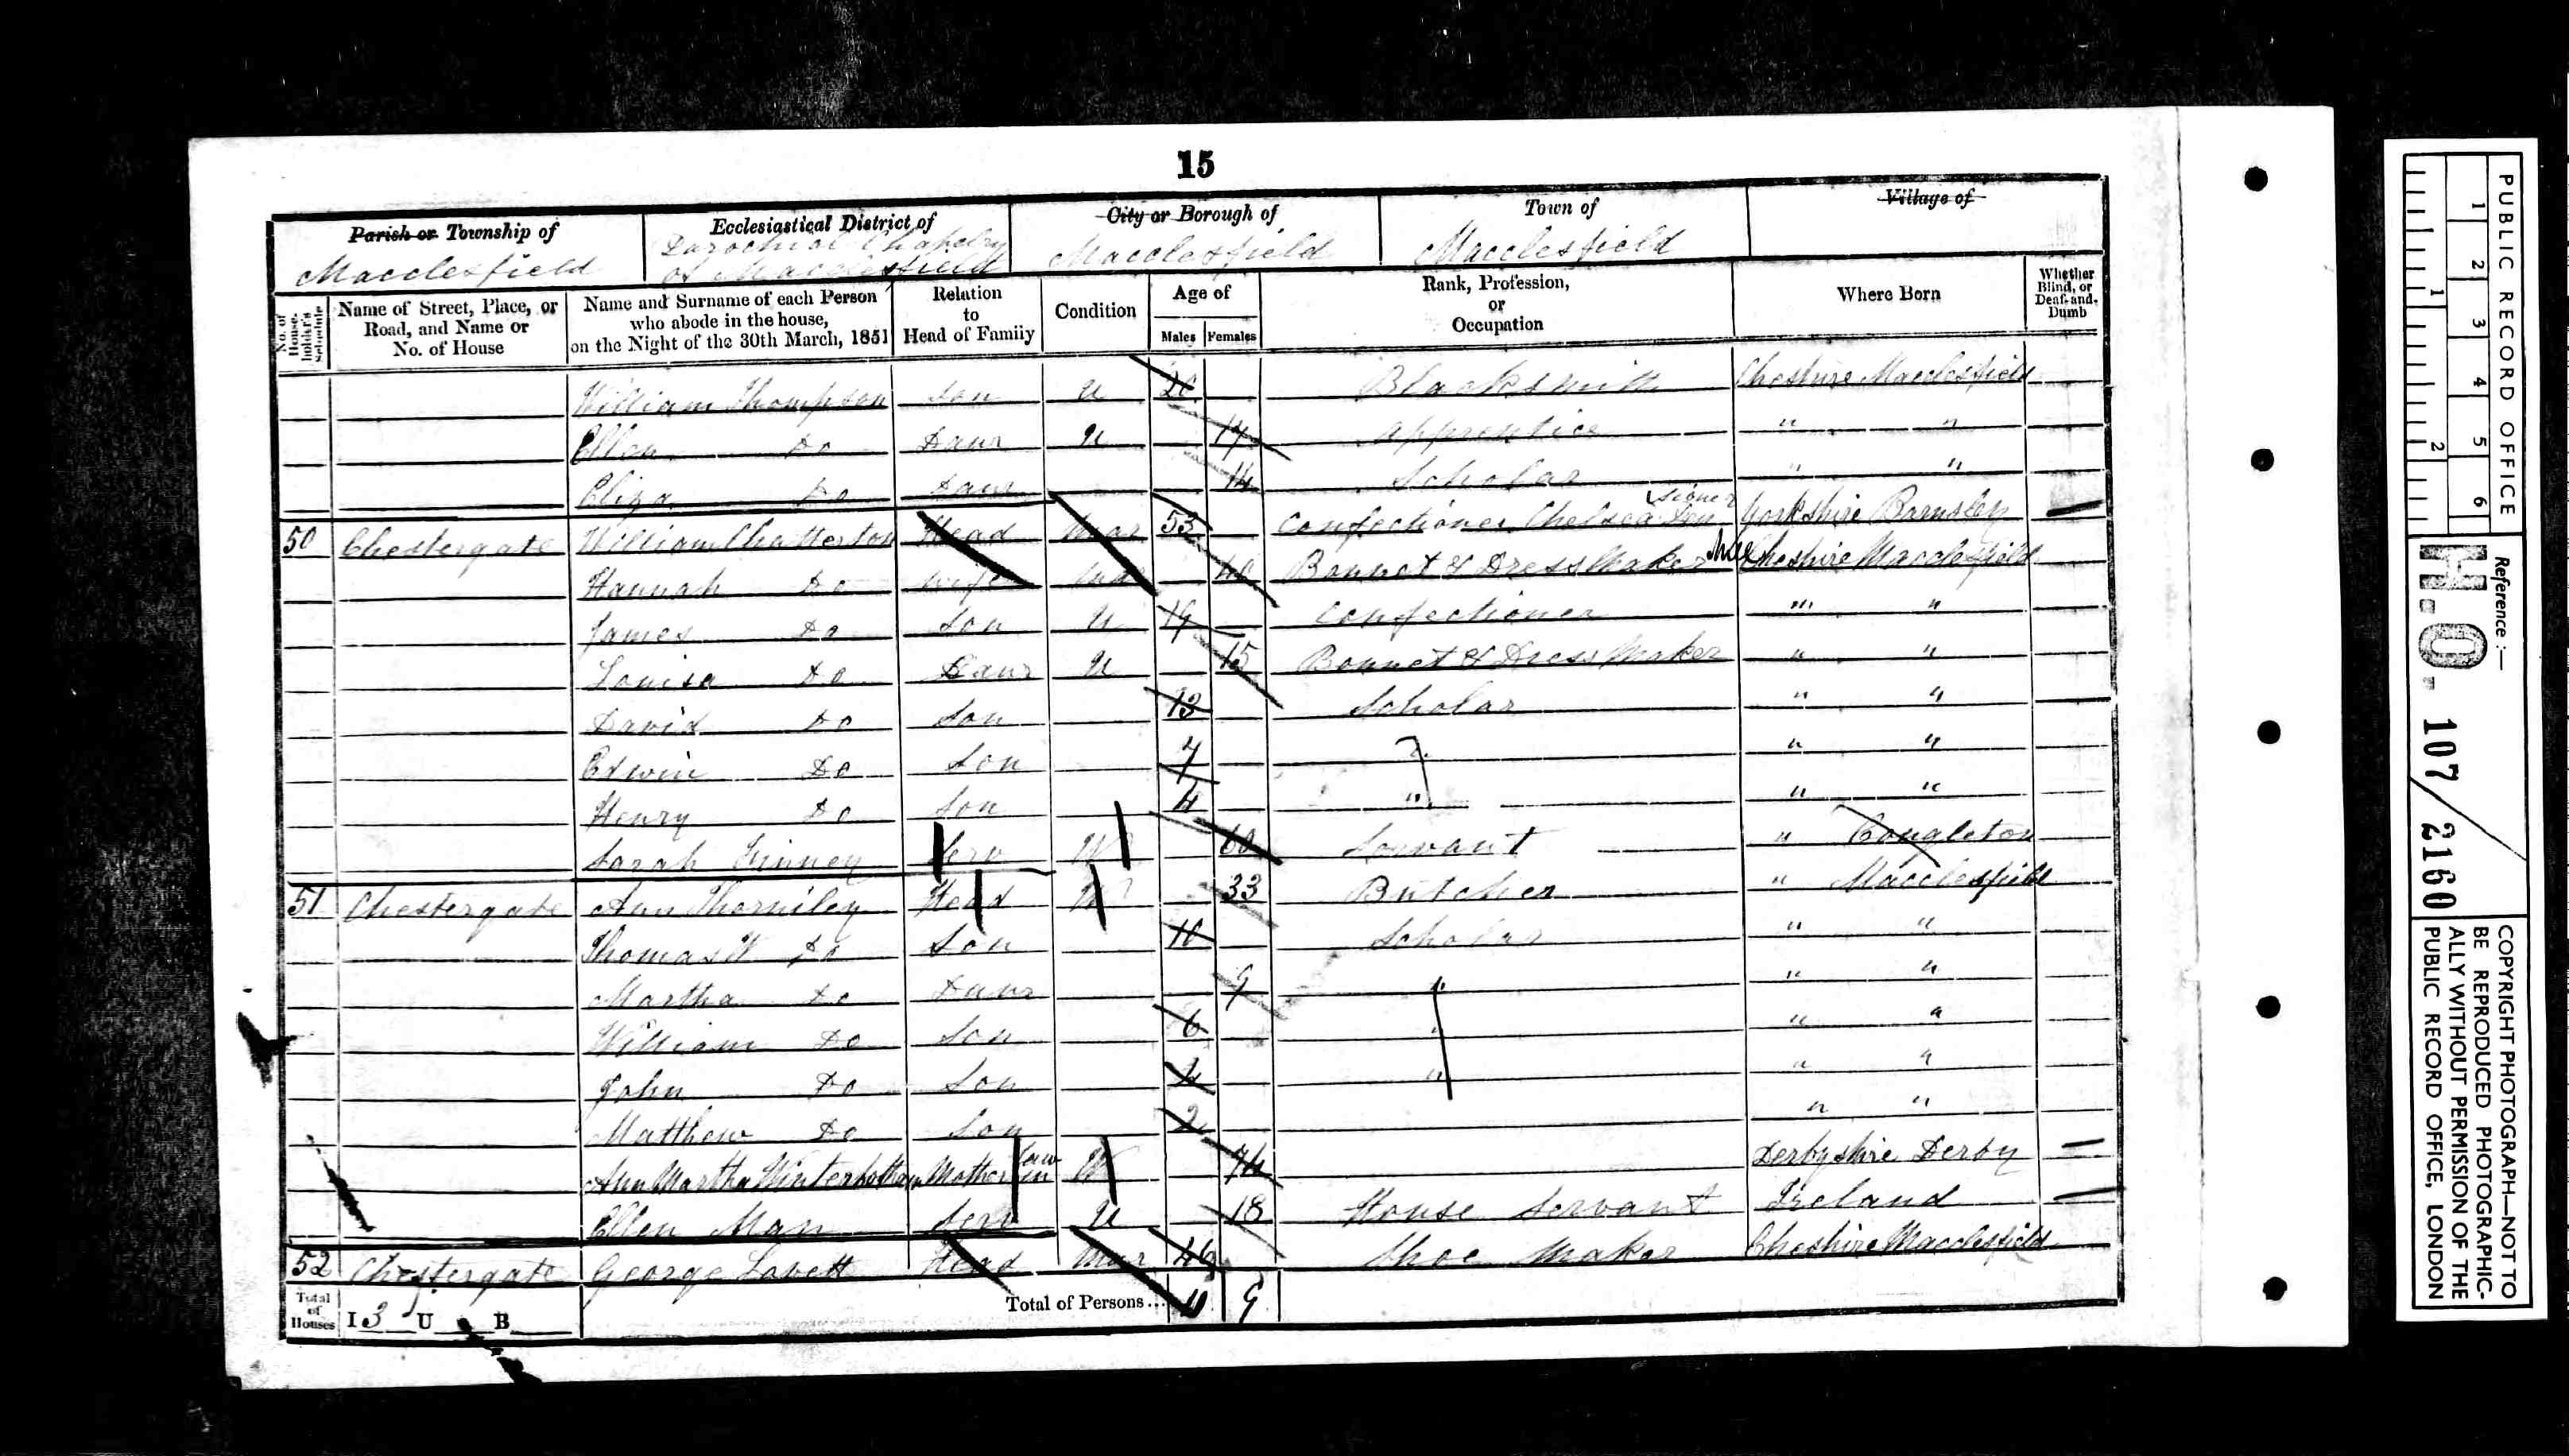 15
Parish or Township of
Macclesfield
Ecclesiastical District of
Parochial Chapelry
of Macclesfield
City or Borough of
Macclesfield
Town of
Macclesfield
Village of
No. of House-holder's Schedule
Name of Street, Place, or Road, and Name or No. of House
Name and Surname of each Person who abode in the house, on the Night of the 30th March, 1851
Relation to Head of Family
Condition
Age of
Males Females
Rank, Profession, or Occupation
Where Born
Whether Blind, or Deaf-and-Dumb
William Thompson Son U 20 Blacksmith Cheshire Macclesfield
Ellen Do Daur U 17 Apprentice " "
Eliza Do Daur 14 Scholar " "
50 Chestergate William Chatterton Head Mar 53 Confectioner Chelsea Pensioner Yorkshire Barnsley
Hannah Do Wife Mar Bonnet & Dress Maker Cheshire Macclesfield
James Do Son U 19 Confectioner " "
Louisa Do Daur U 15 Bonnet & Dress Maker " "
David Do Son 13 Scholar " "
Edwin Do Son 7 " " "
Henry Do Son 4 " " "
Sarah Kinney Serv W 60 Servant " Congleton
51 Chestergate Ann Thorniley Head W 33 Butcher " Macclesfield
Thomas W Do Son Scholar " "
Martha Do Daur 9 " " "
William Do Son 6 " " "
John Do Son 4 " " "
Matthew Do Son 2 " "
Ann Martha Winterbottom Mother in law W 74 Derbyshire Derby
Ellen Man Serv U 18 House Servant Ireland
52 Chestergate George Lovett Head Mar 46 Shoe Maker Cheshire Macclesfield
Total of Houses I 3 U B
Total of Persons... 11 9
PUBLIC RECORD OFFICE
1 2 3 4 5 6
1 2
Reference :—
H.O. 107/2160
COPYRIGHT PHOTOGRAPH—NOT TO
BE REPRODUCED PHOTOGRAPHIC-
ALLY WITHOUT PERMISSION OF THE
PUBLIC RECORD OFFICE, LONDON